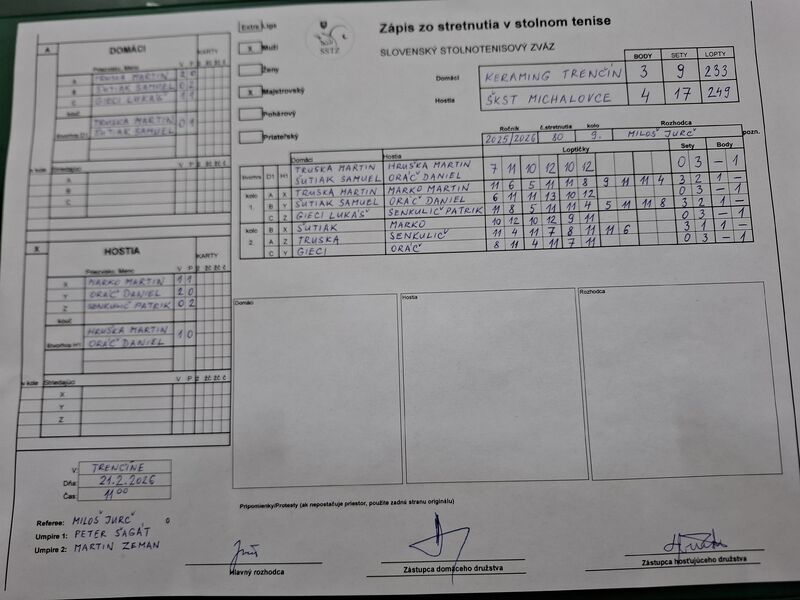 Extra Liga
Zápis zo stretnutia v stolnom tenise
SSTZ
SLOVENSKÝ STOLNOTENISOVÝ ZVÄZ
X Muži
Ženy
X Majstrovský
Pohárový
Priateľský
BODY SETY LOPTY
Domáci KERAMING TRENČÍN 3 9 233
Hostia ŠKST MICHALOVCE 4 17 249
Ročník č.stretnutia kolo Rozhodca
2025/2026 80 9. MILOŠ JURČ pozn.
A DOMÁCI KARTY
Priezvisko, Meno V P
A TRUSKA MARTIN 2 0
B SUTIAK SAMUEL 0 2
C GIECI LUKÁŠ 1 1
kouč
TRUSKA MARTIN 0 1
štvorhra D1 SUTIAK SAMUEL
v kole Striedajúci V P
A
B
C
X HOSTIA KARTY
Priezvisko, Meno V P
X MARKO MARTIN 1 1
Y ORÁČ DANIEL 2 0
Z SENKULIČ PATRIK 0 2
kouč
HRUŠKA MARTIN 1 0
štvorhra H1 ORÁČ DANIEL
v kole Striedajúci V P
X
Y
Z
Domáci Hostia Loptičky Sety Body
štvorhra D1 H1 TRUSKA MARTIN HRUŠKA MARTIN 7 11 10 12 10 12 0 3 – 1
SUTIAK SAMUEL ORÁČ DANIEL
kolo A X TRUSKA MARTIN MARKO MARTIN 11 6 5 11 11 8 9 11 11 4 3 2 1 –
1 B Y SUTIAK SAMUEL ORÁČ DANIEL 6 11 11 13 10 12 0 3 – 1
C Z GIECI LUKÁŠ SENKULIČ PATRIK 11 8 5 11 11 4 5 11 11 8 3 2 1 –
kolo B X SUTIAK MARKO 10 12 10 12 9 11 0 3 – 1
2 A Z TRUSKA SENKULIČ 11 4 11 7 8 11 11 6 3 1 1 –
C Y GIECI ORÁČ 8 11 4 11 7 11 0 3 – 1
Domáci
Hostia
Rozhodca
V: TRENČÍNE
Dňa: 21.2.2026
Čas: 11 00
Pripomienky/Protesty (ak nepostačuje priestor, použite zadnú stranu originálu)
Referee: MILOŠ JURČ
Umpire 1: PETER ŠAGÁT
Umpire 2: MARTIN ZEMAN
Hlavný rozhodca
Zástupca domáceho družstva
Zástupca hosťujúceho družstva